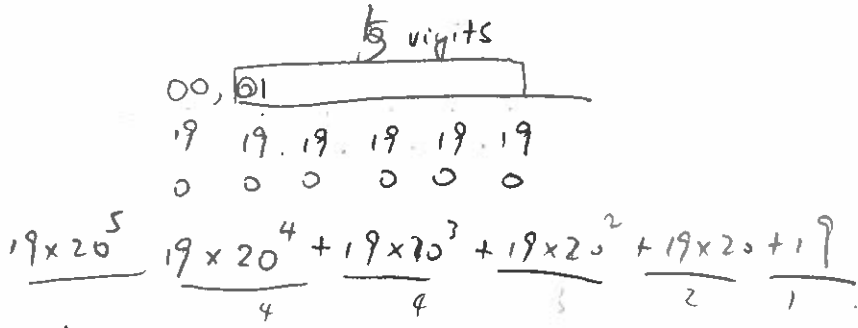 vigits
00, 01
19 19 . 19 . 19 19 . 19
0 0 0 0 0 0
19 × 20^5 19 × 20^4 + 19 × 20^3 + 19 × 20^2 + 19 × 20 + 19
4 4 3 2 1